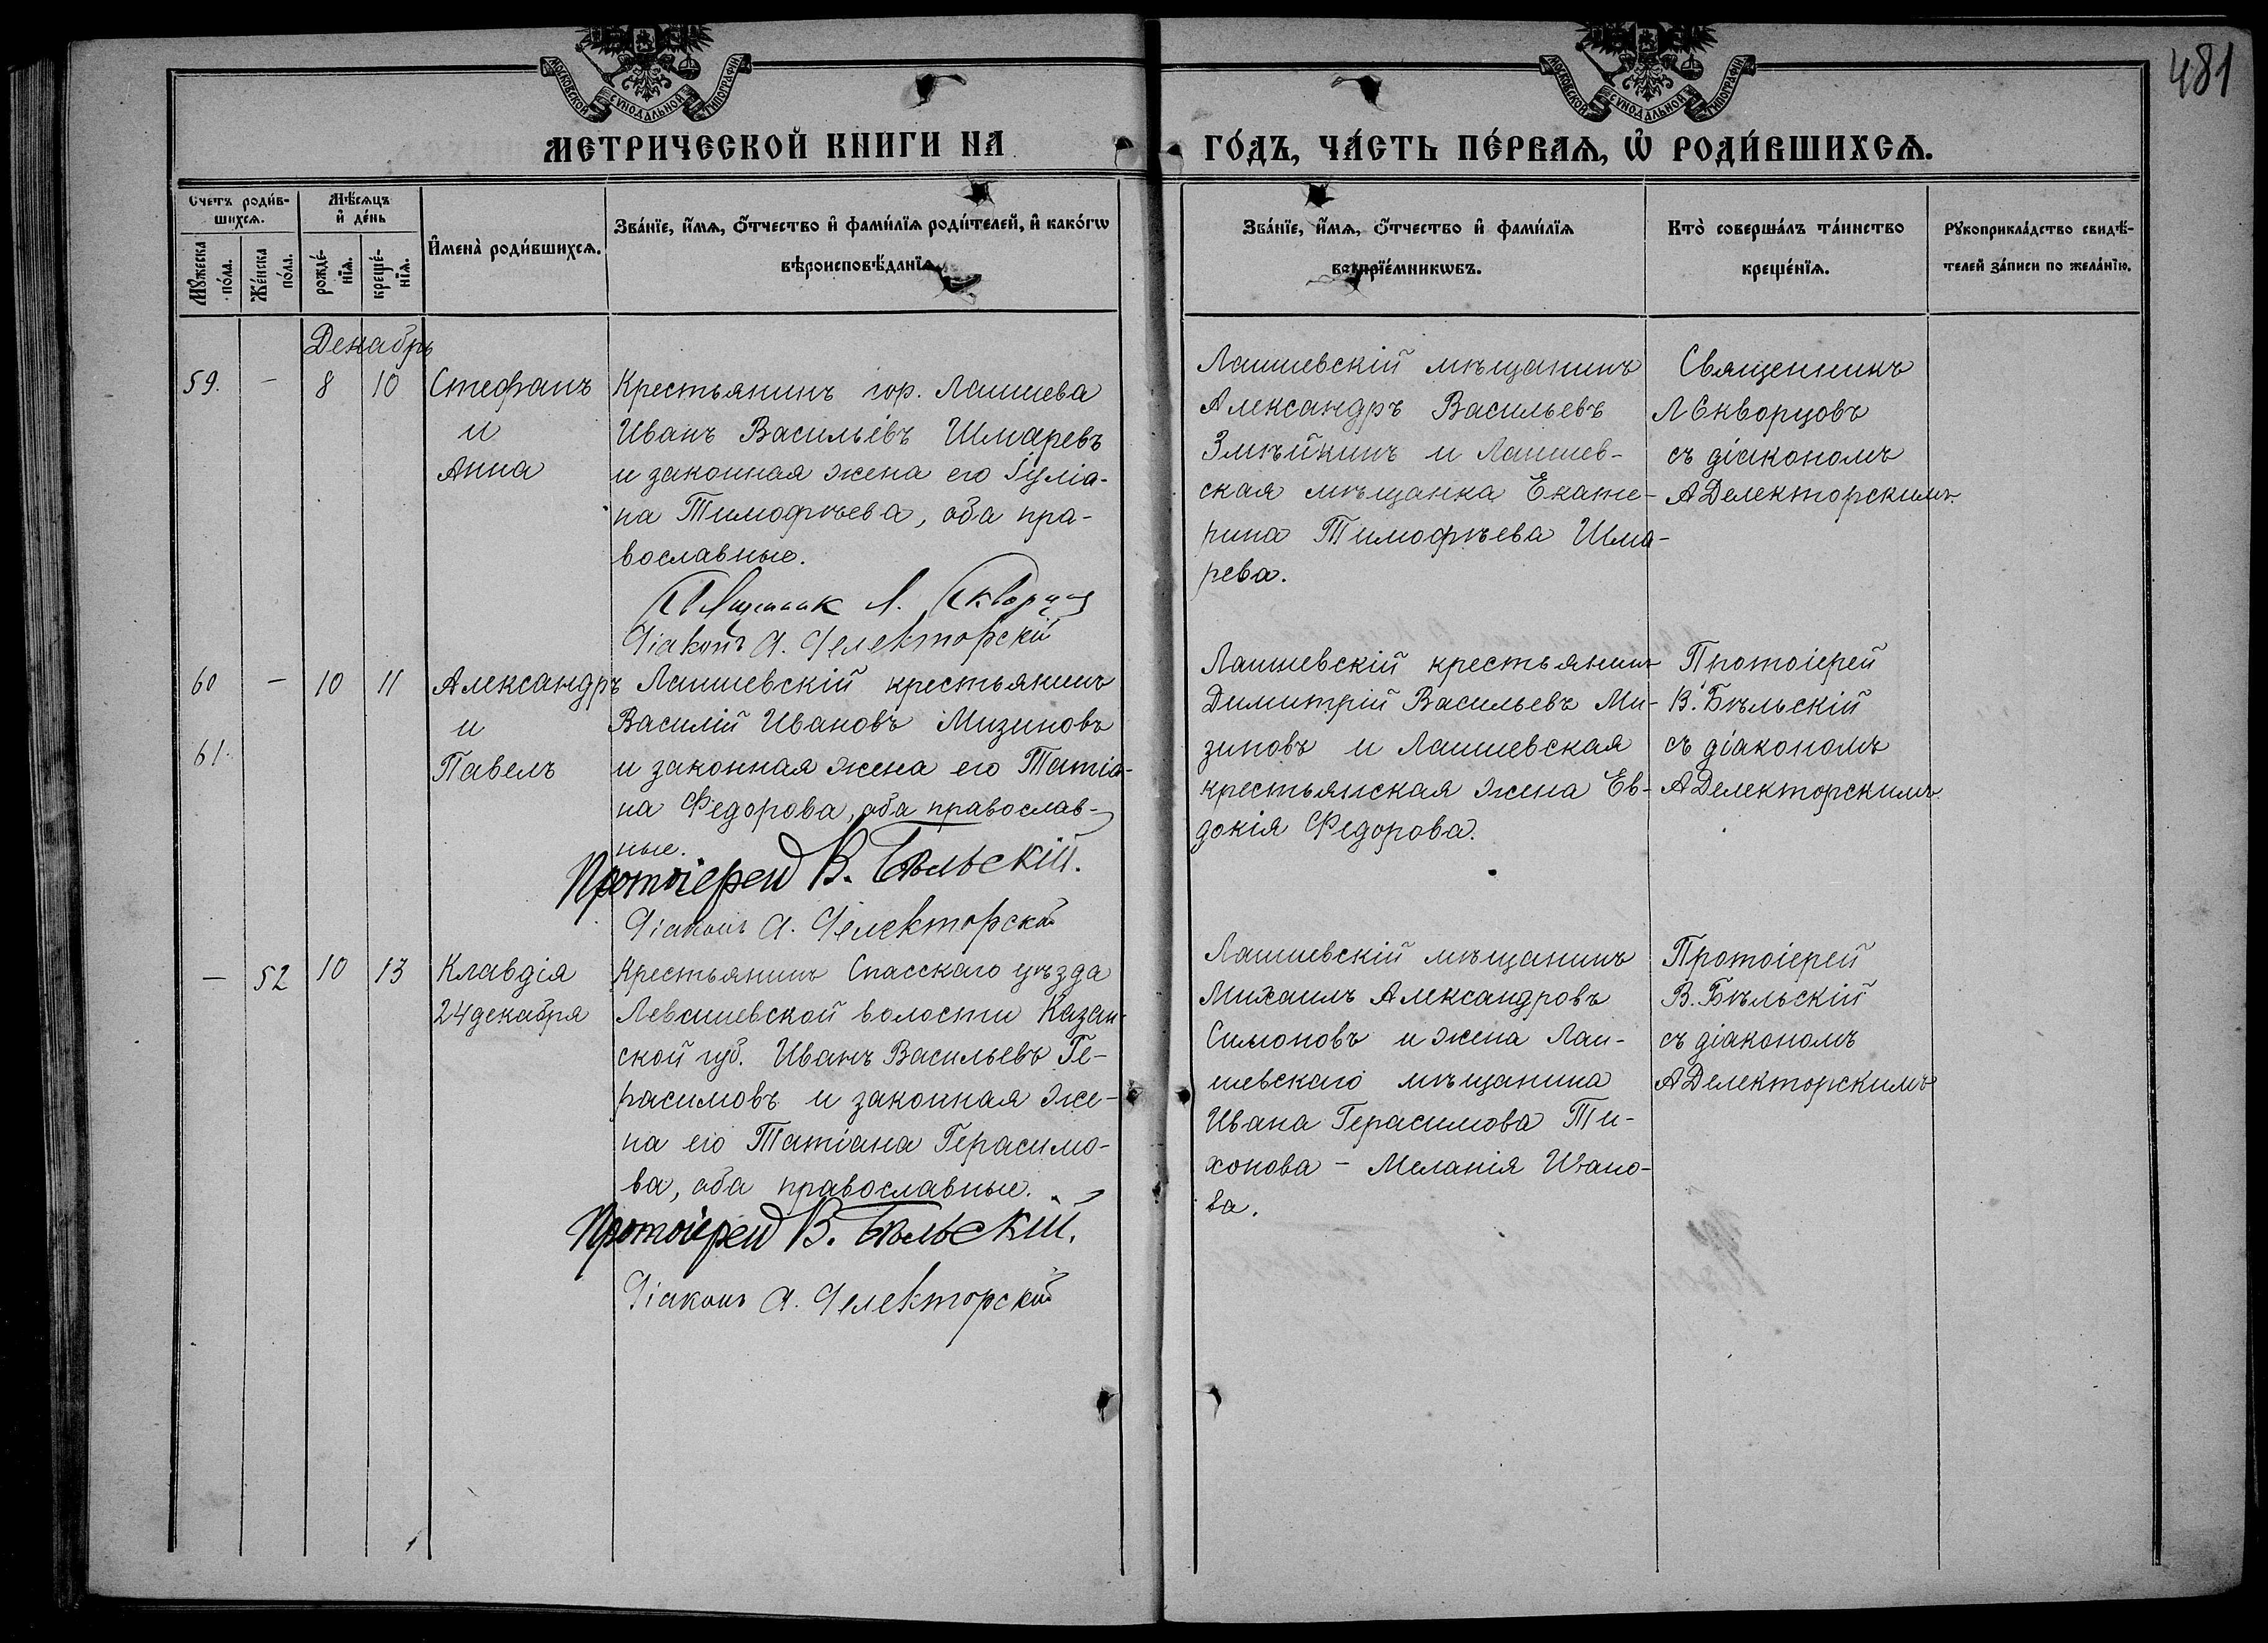 481
МОСКОВСКОЙ СѴНОДАЛЬНОЙ ТИПОГРАФІИ
МОСКОВСКОЙ СѴНОДАЛЬНОЙ ТИПОГРАФІИ
МЕТРИЧЕСКОЙ КНИГИ НА
ГО́ДЪ, ЧА́СТЬ ПЕ́РВАѦ, Ѽ РОДИ́ВШИХСѦ.
Счетъ роди́в-
шихсѧ.
Мꙋ́жеска
по́ла.
Же́нска
по́ла.
Мѣ́сѧцъ
и҆ де́нь
рожде́-
нїѧ.
креще́-
нїѧ.
И҆мена̀ роди́вшихсѧ.
Зва́нїе, и҆́мѧ, ѻ҆́тчество и҆ фами́лїѧ роди́телей, и҆ како́гѡ
вѣроисповѣ́данїѧ.
Зва́нїе, и҆́мѧ, ѻ҆́тчество и҆ фами́лїѧ
воспрїе́мникѡвъ.
Кто̀ соверша́лъ та́инство
креще́нїѧ.
Рꙋкоприкла́дство свидѣ́-
телей за́писи по жела́нїю.
Декабрь
59. — 8 10
Стефанъ
и
Анна
Крестьянинъ гор. Лаишева
Иванъ Васильевъ Шмаревъ
и законная жена его Іуліа-
на Тимофѣева, оба пра-
вославные.
Священник Л. Скворцов
Діаконъ А. Делекторскій
Лаишевскій мѣщанинъ
Александръ Васильевъ
Змѣйкинъ и Лаишев-
ская мѣщанка Екате-
рина Тимофѣева Шма-
рева.
Священникъ
Л Скворцовъ
съ діакономъ
А Делекторскимъ.
60 — 10 11
61.
Александръ
и
Павелъ
Лаишевскій крестьянинъ
Василій Ивановъ Мизиновъ
и законная жена его Татіа-
на Федорова, оба православ-
ные.
Протоіерей В. Бѣльскій.
Діаконъ А. Делекторскій
Лаишевскій крестьянинъ
Димитрій Васильевъ Ми-
зиновъ и Лаишевская
крестьянская жена Ев-
докія Федорова.
Протоіерей
В. Бѣльскій
съ діакономъ
А Делекторскимъ.
— 52 10 13
Клавдія
24 декабря
Крестьянинъ Спасскаго уѣзда
Левашевской волости Казан-
ской губ. Иванъ Васильевъ Ге-
расимовъ и законная же-
на его Татіана Герасимо-
ва, оба православные.
Протоіерей В. Бѣльскій.
Діаконъ А. Делекторскій
Лаишевскій мѣщанинъ
Михаилъ Александровъ
Симоновъ и жена Лаи-
шевскаго мѣщанина
Ивана Герасимова Ти-
хонова – Меланія Ивано-
ва.
Протоіерей
В. Бѣльскій
съ діакономъ
А Делекторскимъ